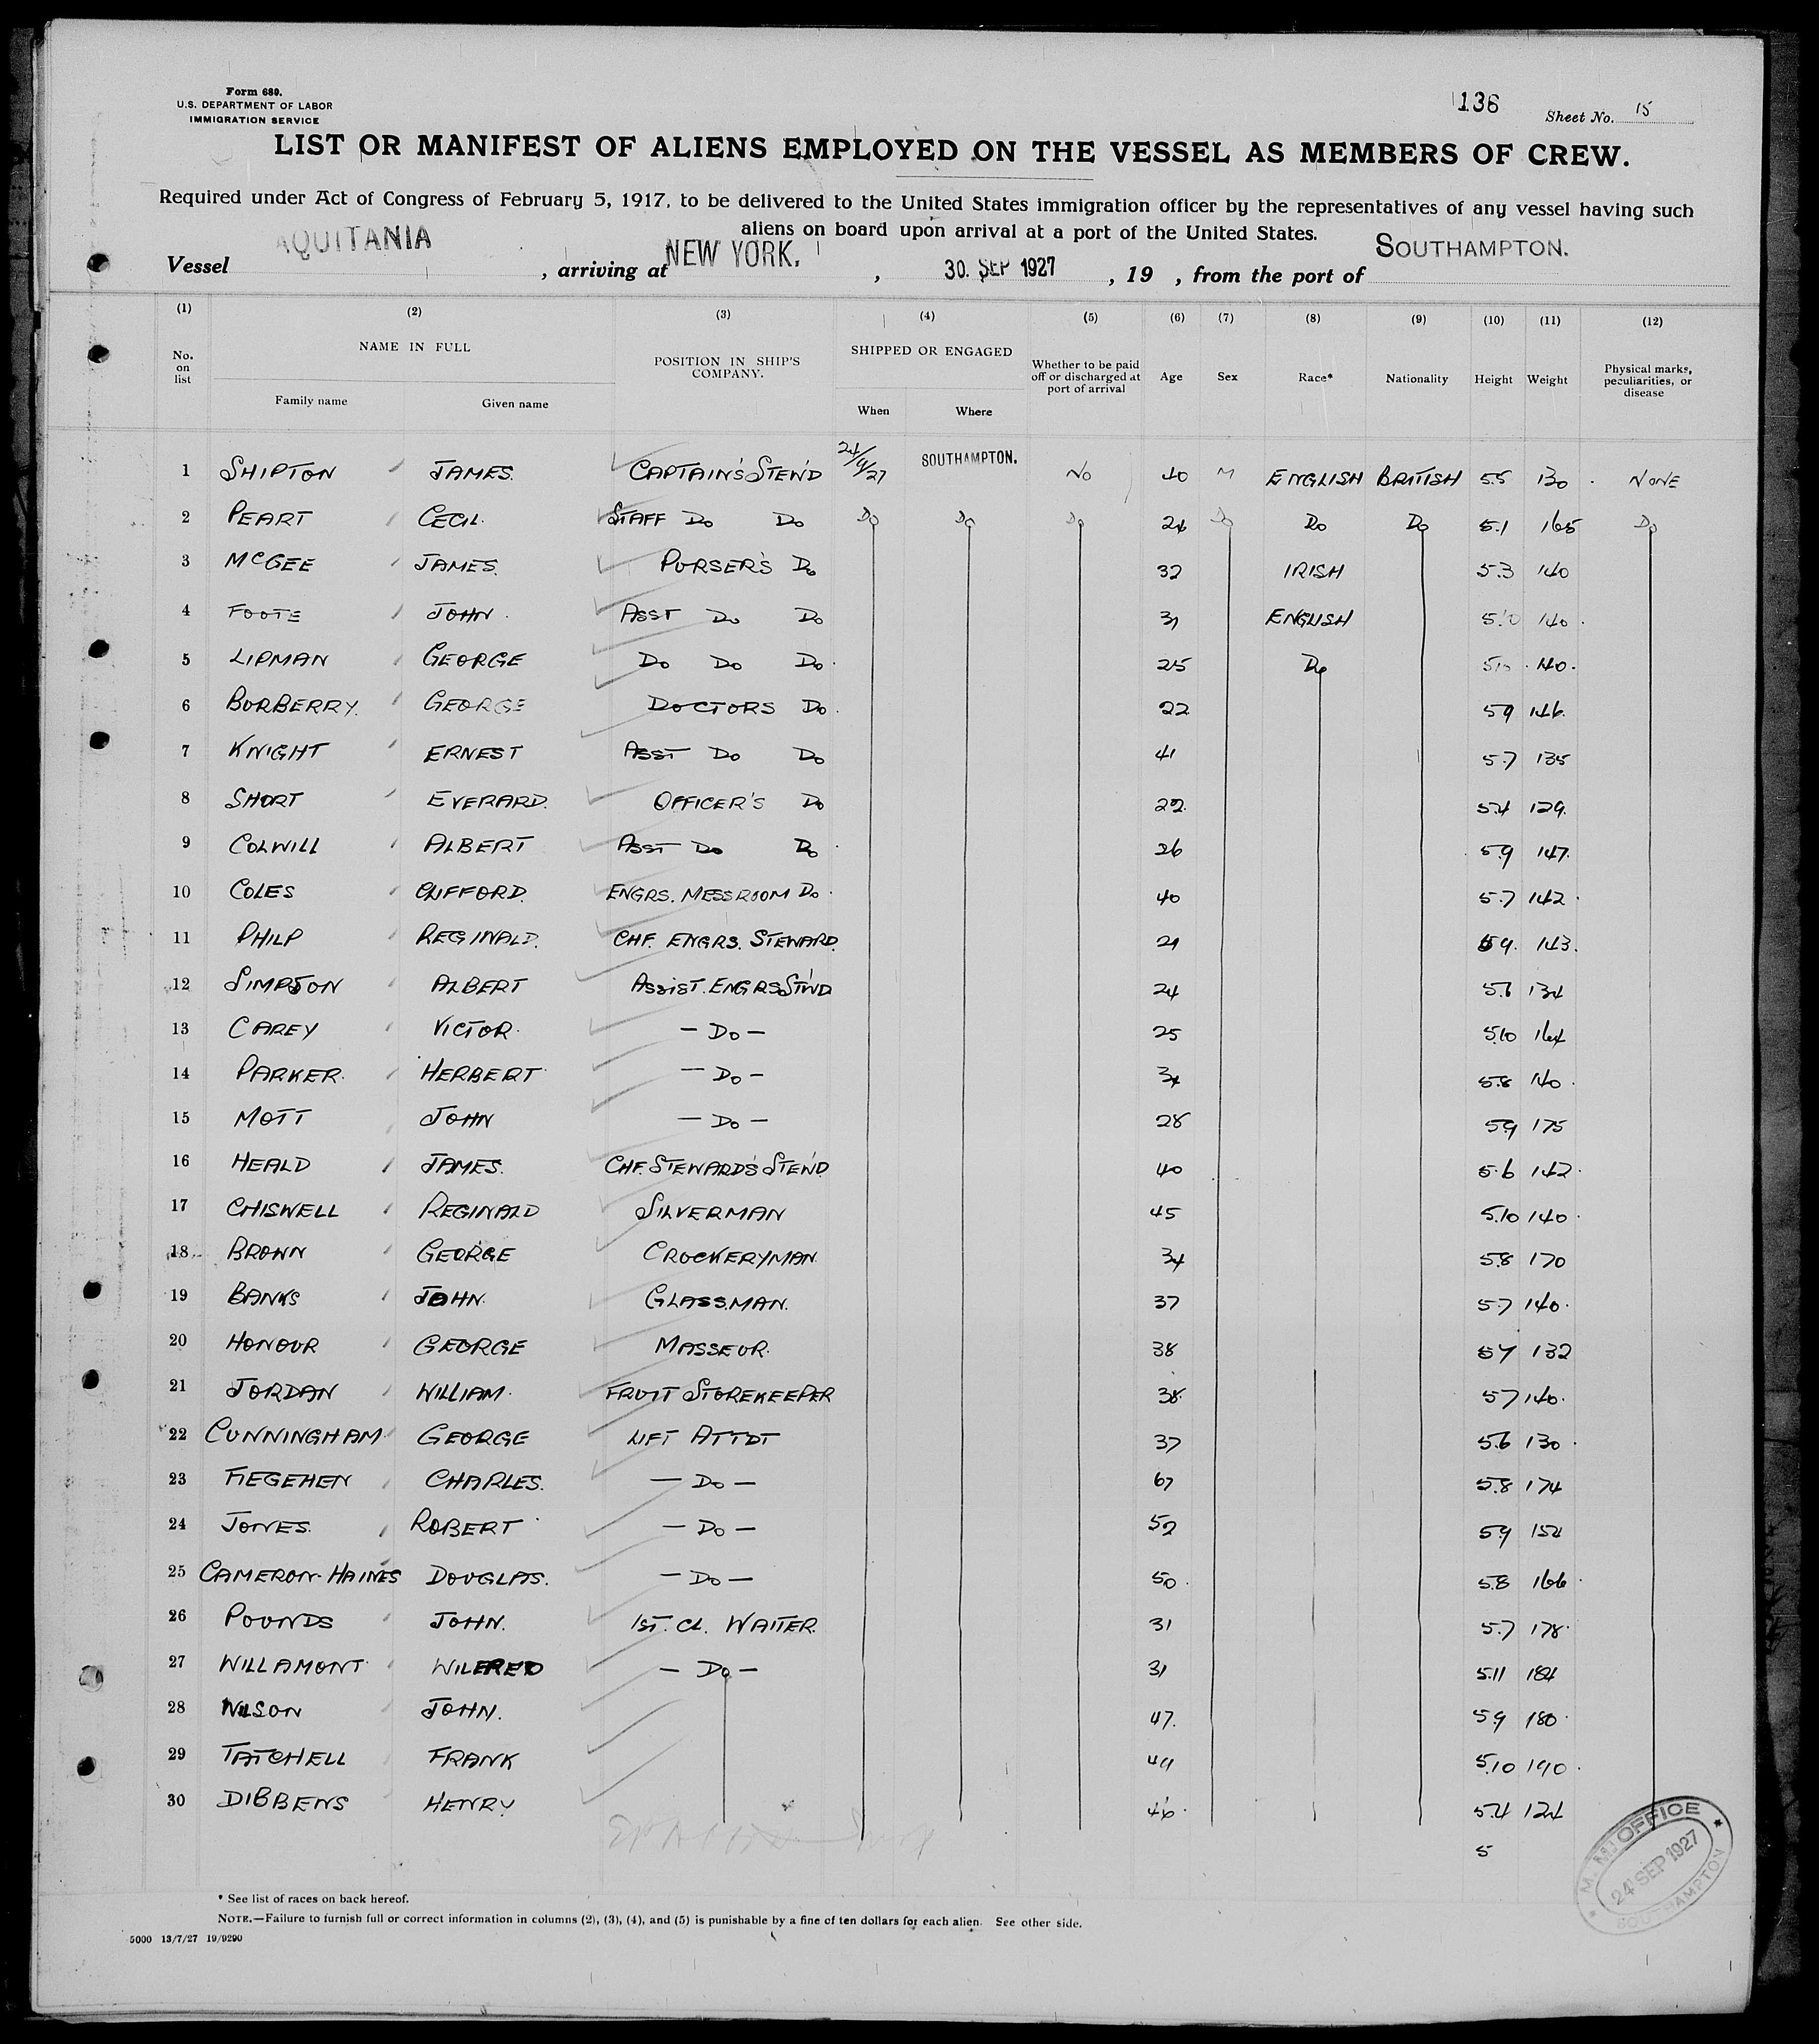 Form 689.
U.S. DEPARTMENT OF LABOR
IMMIGRATION SERVICE
136
Sheet No. 15
LIST OR MANIFEST OF ALIENS EMPLOYED ON THE VESSEL AS MEMBERS OF CREW.
Required under Act of Congress of February 5, 1917, to be delivered to the United States immigration officer by the representatives of any vessel having such
aliens on board upon arrival at a port of the United States.
Vessel AQUITANIA, arriving at NEW YORK., 30. SEP 1927, 19 , from the port of SOUTHAMPTON.
(1) (2) (3) (4) (5) (6) (7) (8) (9) (10) (11) (12)
No. on list NAME IN FULL Family name Given name POSITION IN SHIP'S COMPANY. SHIPPED OR ENGAGED When Where Whether to be paid off or discharged at port of arrival Age Sex Race* Nationality Height Weight Physical marks, peculiarities, or disease
1 SHIPTON JAMES. CAPTAIN'S STEW'D 24/9/27 SOUTHAMPTON. NO 40 M ENGLISH BRITISH 5.5 130 NONE
2 PEART CECIL. STAFF DO DO DO DO DO 24 DO DO DO 5.1 165 DO
3 MCGEE JAMES. PURSER'S DO 32 IRISH 5.3 140
4 FOOTE JOHN. ASST DO DO 31 ENGLISH 5.10 140
5 LIPMAN GEORGE DO DO DO. 25 DO 140.
6 BURBERRY. GEORGE DOCTORS DO. 22 59 146.
7 KNIGHT ERNEST ASST DO DO 41 5.7 135
8 SHORT EVERARD. OFFICER'S DO 22. 5.4 129.
9 COLWILL ALBERT ASST DO DO 26 5.9 147.
10 COLES CLIFFORD. ENGRS. MESSROOM DO. 40 5.7 142
11 PHILP REGINALD. CHF. ENGRS. STEWARD. 21 59. 143.
12 SIMPSON ALBERT ASSIST. ENGRS STWD 24 5.6 134
13 CAREY VICTOR. — DO — 25 5.10 164
14 PARKER. HERBERT — DO — 34 5.8 140
15 MOTT JOHN — DO — 28 5.9 175
16 HEALD JAMES. CHF. STEWARD'S STEW'D. 40 5.6 142
17 CHISWELL REGINALD SILVERMAN 45 5.10 140
18 BROWN GEORGE CROCKERYMAN 34 5.8 170
19 BANKS JOHN. GLASSMAN. 37 5.7 140
20 HONOUR GEORGE MASSEUR. 38 132
21 JORDAN WILLIAM. FRUIT STOREKEEPER 38. 5.7 140.
22 CUNNINGHAM GEORGE LIFT ATTDT 37 5.6 130
23 FIEGEHEN CHARLES. — DO — 67 5.8 174
24 JONES. ROBERT — DO — 52 59 154
25 CAMERON-HAINES DOUGLAS. — DO — 50. 5.8 166
26 POUNDS JOHN. 1ST. CL. WAITER. 31 5.7 178
27 WILLAMONT WILFRED — DO — 31 5.11 184
28 WILSON JOHN. 47. 5.9 180
29 TATCHELL FRANK 49 5.10 190
30 DIBBENS HENRY 46. 5.4 124
5
M.M. OFFICE
24 SEP 1927
SOUTHAMPTON
* See list of races on back hereof.
NOTE.—Failure to furnish full or correct information in columns (2), (3), (4), and (5) is punishable by a fine of ten dollars for each alien. See other side.
5000 13/7/27 19/9290